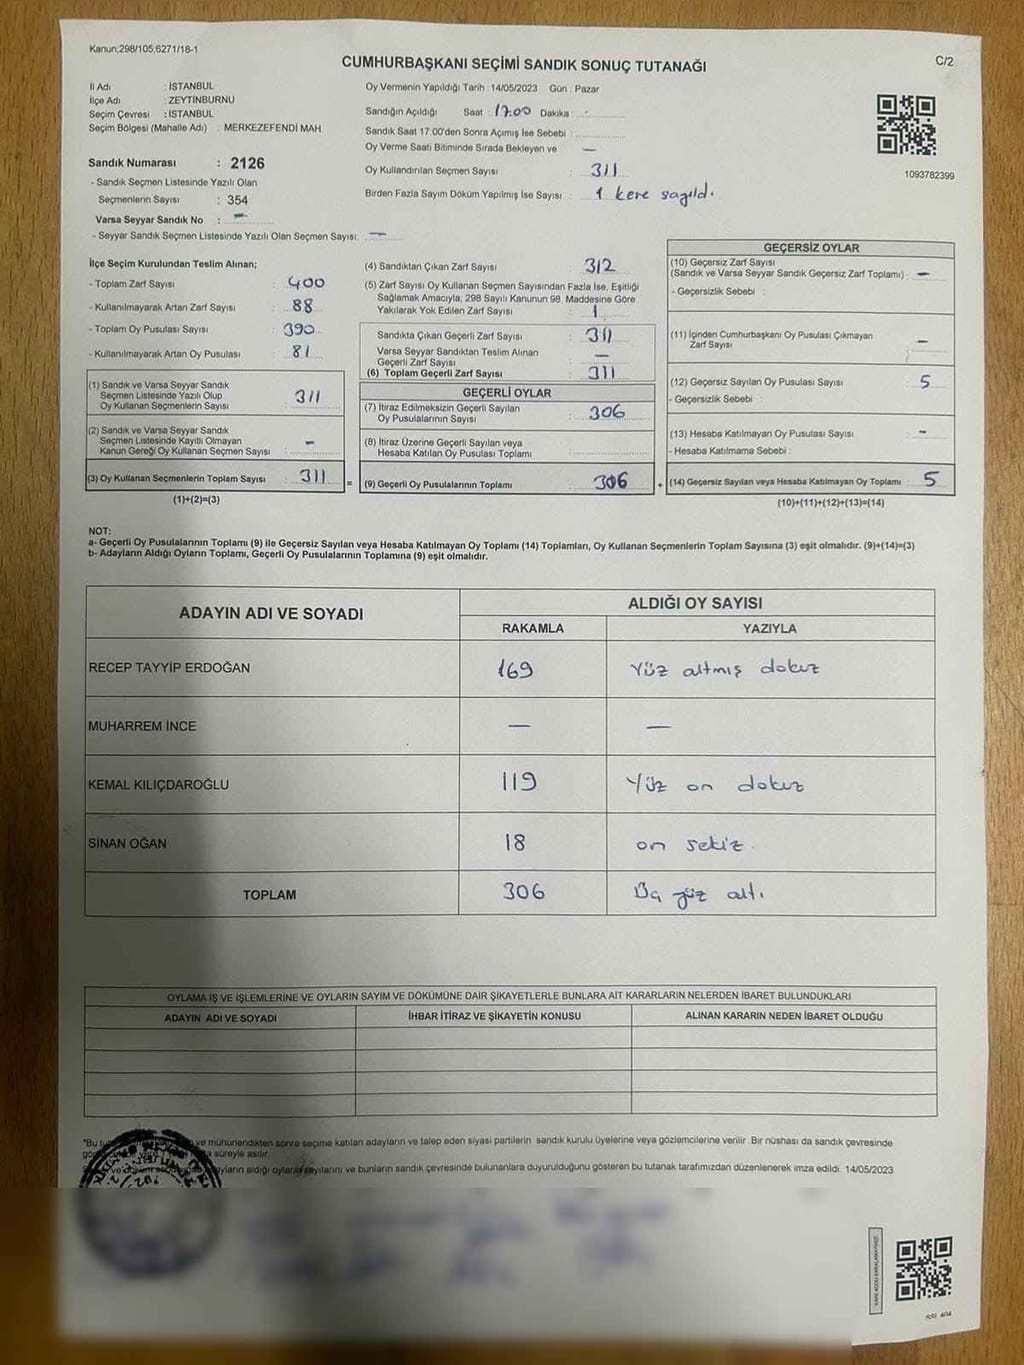 Kanun;298/105;6271/18-1
C/2
CUMHURBAŞKANI SEÇİMİ SANDIK SONUÇ TUTANAĞI
İl Adı : İSTANBUL
İlçe Adı : ZEYTİNBURNU
Seçim Çevresi : İSTANBUL
Seçim Bölgesi (Mahalle Adı) : MERKEZEFENDİ MAH.
Sandık Numarası : 2126
- Sandık Seçmen Listesinde Yazılı Olan
Seçmenlerin Sayısı : 354
Varsa Seyyar Sandık No : —
- Seyyar Sandık Seçmen Listesinde Yazılı Olan Seçmen Sayısı: —
Oy Vermenin Yapıldığı Tarih :14/05/2023 Gün : Pazar
Sandığın Açıldığı Saat : 17:00 Dakika :
Sandık Saat 17:00'den Sonra Açılmış İse Sebebi :
Oy Verme Saati Bitiminde Sırada Bekleyen ve —
Oy Kullandırılan Seçmen Sayısı : 311
Birden Fazla Sayım Döküm Yapılmış İse Sayısı : 1 kere sayıldı.
1093782399
İlçe Seçim Kurulundan Teslim Alınan;
- Toplam Zarf Sayısı : 400
- Kullanılmayarak Artan Zarf Sayısı : 88
- Toplam Oy Pusulası Sayısı : 390
- Kullanılmayarak Artan Oy Pusulası : 81
(1) Sandık ve Varsa Seyyar Sandık
Seçmen Listesinde Yazılı Olup
Oy Kullanan Seçmenlerin Sayısı : 311
(2) Sandık ve Varsa Seyyar Sandık
Seçmen Listesinde Kayıtlı Olmayan
Kanun Gereği Oy Kullanan Seçmen Sayısı : -
(3) Oy Kullanan Seçmenlerin Toplam Sayısı : 311 =
(1)+(2)=(3)
(4) Sandıktan Çıkan Zarf Sayısı : 312
(5) Zarf Sayısı Oy Kullanan Seçmen Sayısından Fazla İse, Eşitliği
Sağlamak Amacıyla, 298 Sayılı Kanunun 98. Maddesine Göre
Yakılarak Yok Edilen Zarf Sayısı : 1
Sandıkta Çıkan Geçerli Zarf Sayısı : 311
Varsa Seyyar Sandıktan Teslim Alınan
Geçerli Zarf Sayısı —
(6) Toplam Geçerli Zarf Sayısı : 311
GEÇERLİ OYLAR
(7) İtiraz Edilmeksizin Geçerli Sayılan
Oy Pusulalarının Sayısı : 306
(8) İtiraz Üzerine Geçerli Sayılan veya
Hesaba Katılan Oy Pusulası Toplamı :
(9) Geçerli Oy Pusulalarının Toplamı : 306 +
GEÇERSİZ OYLAR
(10) Geçersiz Zarf Sayısı
(Sandık ve Varsa Seyyar Sandık Geçersiz Zarf Toplamı) : —
- Geçersizlik Sebebi :
(11) İçinden Cumhurbaşkanı Oy Pusulası Çıkmayan
Zarf Sayısı : —
(12) Geçersiz Sayılan Oy Pusulası Sayısı : 5
- Geçersizlik Sebebi :
(13) Hesaba Katılmayan Oy Pusulası Sayısı : -
- Hesaba Katılmama Sebebi :
(14) Geçersiz Sayılan veya Hesaba Katılmayan Oy Toplamı : 5
(10)+(11)+(12)+(13)=(14)
NOT:
a- Geçerli Oy Pusulalarının Toplamı (9) ile Geçersiz Sayılan veya Hesaba Katılmayan Oy Toplamı (14) Toplamları, Oy Kullanan Seçmenlerin Toplam Sayısına (3) eşit olmalıdır. (9)+(14)=(3)
b- Adayların Aldığı Oyların Toplamı, Geçerli Oy Pusulalarının Toplamına (9) eşit olmalıdır.
ADAYIN ADI VE SOYADI
ALDIĞI OY SAYISI
RAKAMLA YAZIYLA
RECEP TAYYİP ERDOĞAN 169 Yüz altmış dokuz
MUHARREM İNCE — —
KEMAL KILIÇDAROĞLU 119 Yüz on dokuz
SİNAN OĞAN 18 on sekiz.
TOPLAM 306 Üç yüz altı
OYLAMA İŞ VE İŞLEMLERİNE VE OYLARIN SAYIM VE DÖKÜMÜNE DAİR ŞİKAYETLERLE BUNLARA AİT KARARLARIN NELERDEN İBARET BULUNDUKLARI
ADAYIN ADI VE SOYADI İHBAR İTİRAZ VE ŞİKAYETİN KONUSU ALINAN KARARIN NEDEN İBARET OLDUĞU
*Bu ve mühürlendikten sonra seçime katılan adayların ve talep eden siyasi partilerin sandık kurulu üyelerine veya gözlemcilerine verilir. Bir nüshası da sandık çevresinde
süreyle asılır.
aldığı oyların sayılarını ve bunların sandık çevresinde bulunanlara duyurulduğunu gösteren bu tutanak tarafımızdan düzenlenerek imza edildi. 14/05/2023